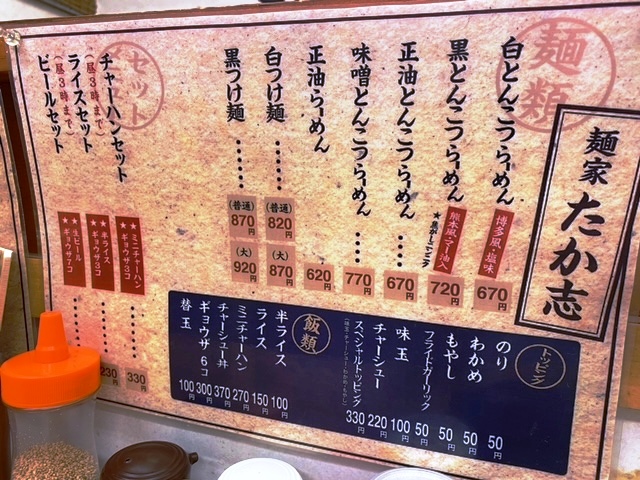 麺家 たか志
麺類
白とんこつらーめん 博多風・塩味 670円
黒とんこつらーめん 熊本風・マー油入 720円
正油とんこつらーめん 670円
味噌とんこつらーめん 770円
正油らーめん 620円
白つけ麺 (普通) 820円 (大) 870円
黒つけ麺 (普通) 870円 (大) 920円
セット
チャーハンセット ★ミニチャーハン ★ギョウザ3コ 330円
(昼3時まで)
ライスセット ★半ライス ★ギョウザ3コ 230円
(昼3時まで)
ビールセット ★生ビール ★ギョウザ7コ
トッピング
のり 50円
わかめ 50円
もやし 50円
フライドガーリック 50円
味玉 100円
チャーシュー 220円
スペシャルトッピング 330円
飯類
半ライス 100円
ライス 150円
ミニチャーハン 270円
チャーシュー丼 370円
ギョウザ 6コ 300円
替玉 100円